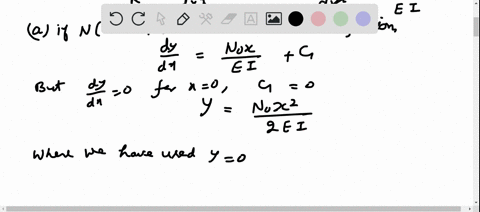 EI
(a) if N(
dy/dx = N₀x/EI + C₁
But dy/dx = 0 for x=0, C₁ = 0
y = N₀x²/2EI
Where we have used y=0